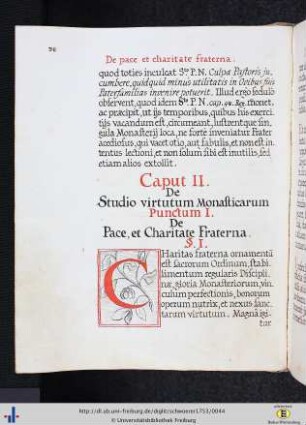 De pace et charitate fraterna.
quod toties inculcat S. P. N. Culpæ Pastoris in-
cumbere, quidquid minus utilitatis in Ovibus suis
Paterfamilias invenire potuerit. Illud ergo sedulò
observent, quod idem S. P. N. cap. 48. Reg. monet,
ac præcipit, ut ijs temporibus, quibus his exerci-
tijs vacandum est, circumeant, lustrentque sin-
gula Monasterij loca, ne fortè inveniatur Frater
acediosus, qui vacet otio, aut fabulis, et non est in-
tentus lectioni, et non solum sibi est inutilis, sed
etiam alios extollit.
Caput II.
De
Studio virtutum Monasticarum
Punctum I.
De
Pace, et Charitate Fraterna.
§. I.
CHaritas fraterna ornamentũ
est sacrorum Ordinum, stabi-
limentum regularis Discipli-
næ, gloria Monasteriorum, vin-
culum perfectionis, bonorum
operum nutrix, et nexus sanc-
tarum virtutum. Magna igi-
tur
http://dl.ub.uni-freiburg.de/diglit/scheuerer1753/0044
© Universitätsbibliothek Freiburg